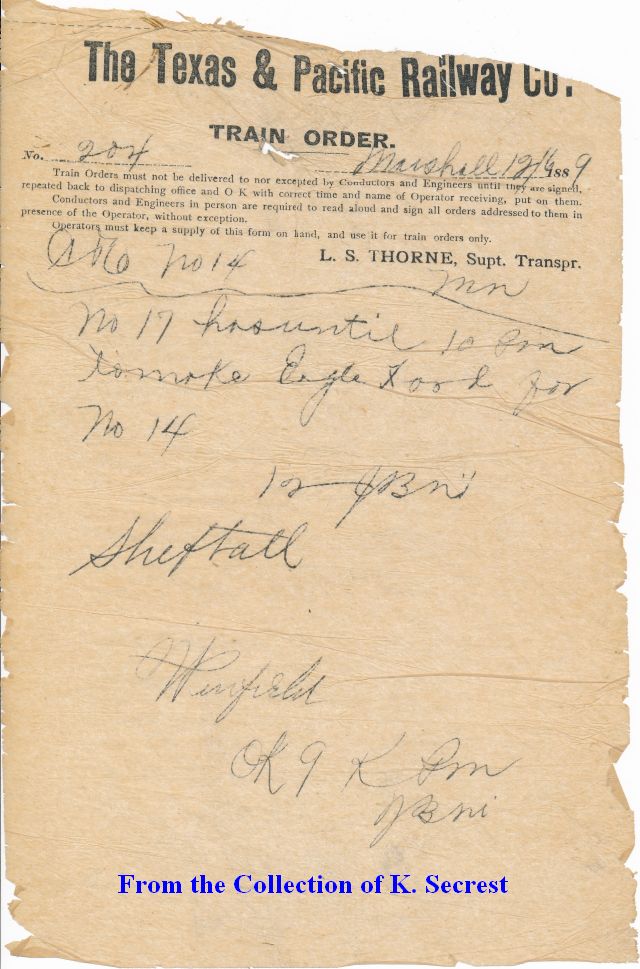 The Texas & Pacific Railway Co.
TRAIN ORDER.
No. 204 Marshall 12/6 1889
Train Orders must not be delivered to nor excepted by Conductors and Engineers until they are signed,
repeated back to dispatching office and O K with correct time and name of Operator receiving, put on them.
Conductors and Engineers in person are required to read aloud and sign all orders addressed to them in
presence of the Operator, without exception.
Operators must keep a supply of this form on hand, and use it for train orders only.
L. S. THORNE, Supt. Transpr.
No 14
Mn
No 17 has until 10 Pm
to make Eagle Ford for
No 14
12
Sheftall
Winfield
OK 9 K Pm
From the Collection of K. Secrest